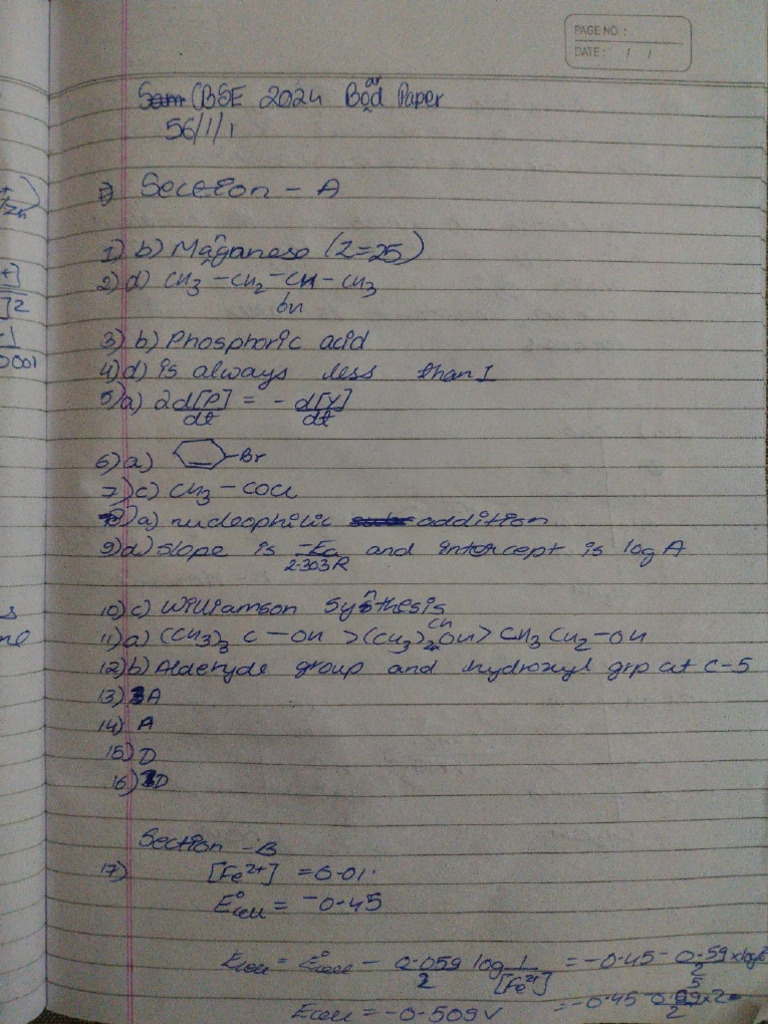 PAGE NO :
DATE : / /
CBSE 2024 Board Paper
56/1/1
Section - A
1) b) Manganese (Z=25)
2) d) CH3 - CH2 - CH - CH3
OH
3) b) Phosphoric acid
4) d) is always less than 1
5) a) 2d[P]/dt = - d[Y]/dt
6) a) -Br
7) c) CH3 - COCl
8) a) nucleophilic addition
9) d) slope is -Ea/2.303R and intercept is log A
10) c) Williamson Synthesis
11) a) (CH3)3 C - OH > (CH3)2CHOH > CH3 CH2-OH
12) b) Aldehyde group and hydroxyl grp at C-5
13) A
14) A
15) D
16) D
Section - B
17) [Fe2+] = 0.01
E°cell = -0.45
Ecell = E°cell - 0.059/2 log 1/[Fe2+] = -0.45 - 0.59/2 x log
Ecell = -0.509V = -0.45